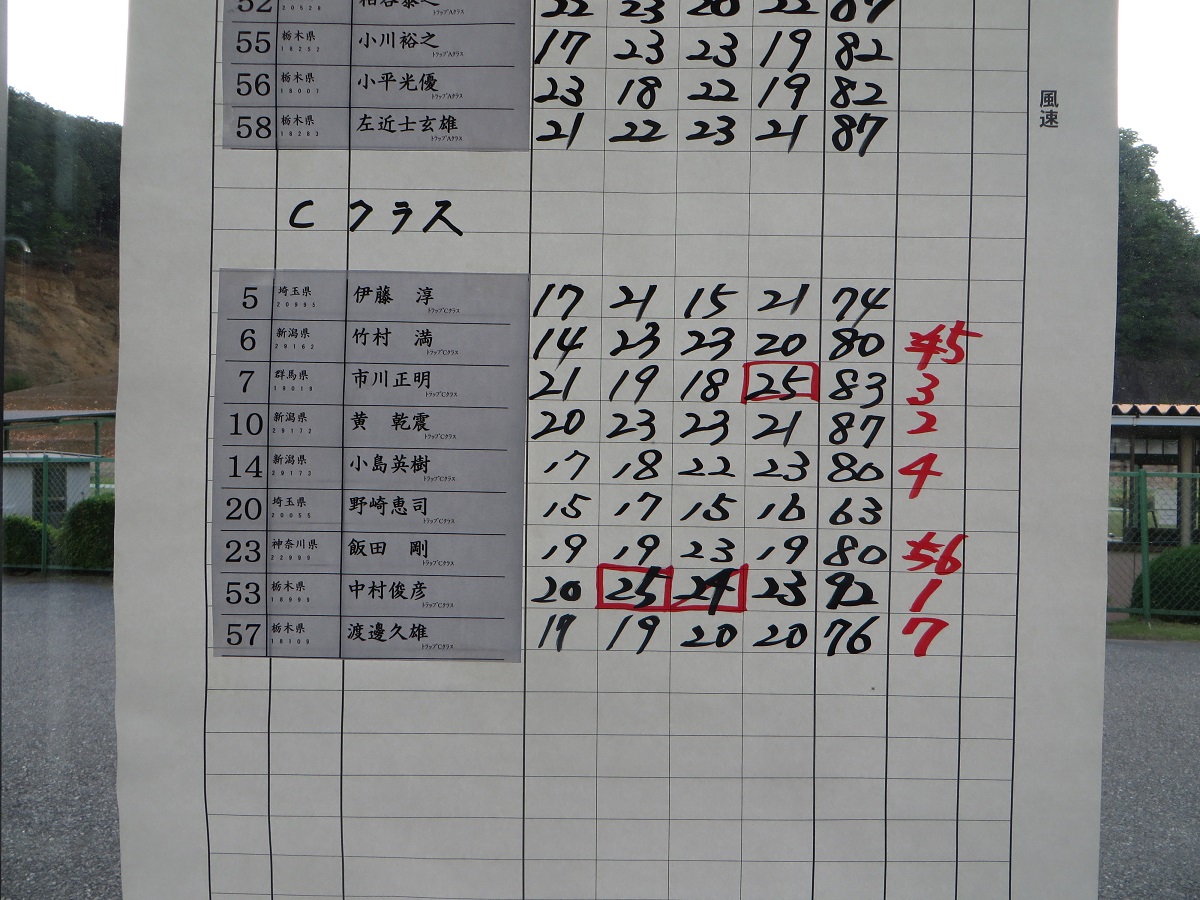 52 20529 柏谷泰之 トラップAクラス 22 23 20 22 87
55 栃木県 18252 小川裕之 トラップAクラス 17 23 23 19 82
56 栃木県 18007 小平光優 トラップAクラス 23 18 22 19 82
58 栃木県 18283 左近士玄雄 トラップAクラス 21 22 23 21 87
風速
C クラス
5 埼玉県 20995 伊藤 淳 トラップCクラス 17 21 15 21 74
6 新潟県 29162 竹村 満 トラップCクラス 14 23 23 20 80 5
7 群馬県 19019 市川正明 トラップCクラス 21 19 18 25 83 3
10 新潟県 29172 黄 乾震 トラップCクラス 20 23 23 21 87 2
14 新潟県 29173 小島英樹 トラップCクラス 17 18 22 23 80 4
20 埼玉県 20055 野崎恵司 トラップCクラス 15 17 15 16 63
23 神奈川県 22999 飯田 剛 トラップCクラス 19 19 23 19 80 6
53 栃木県 18998 中村俊彦 トラップCクラス 20 25 24 23 92 1
57 栃木県 18108 渡邊久雄 トラップCクラス 19 19 20 20 76 7